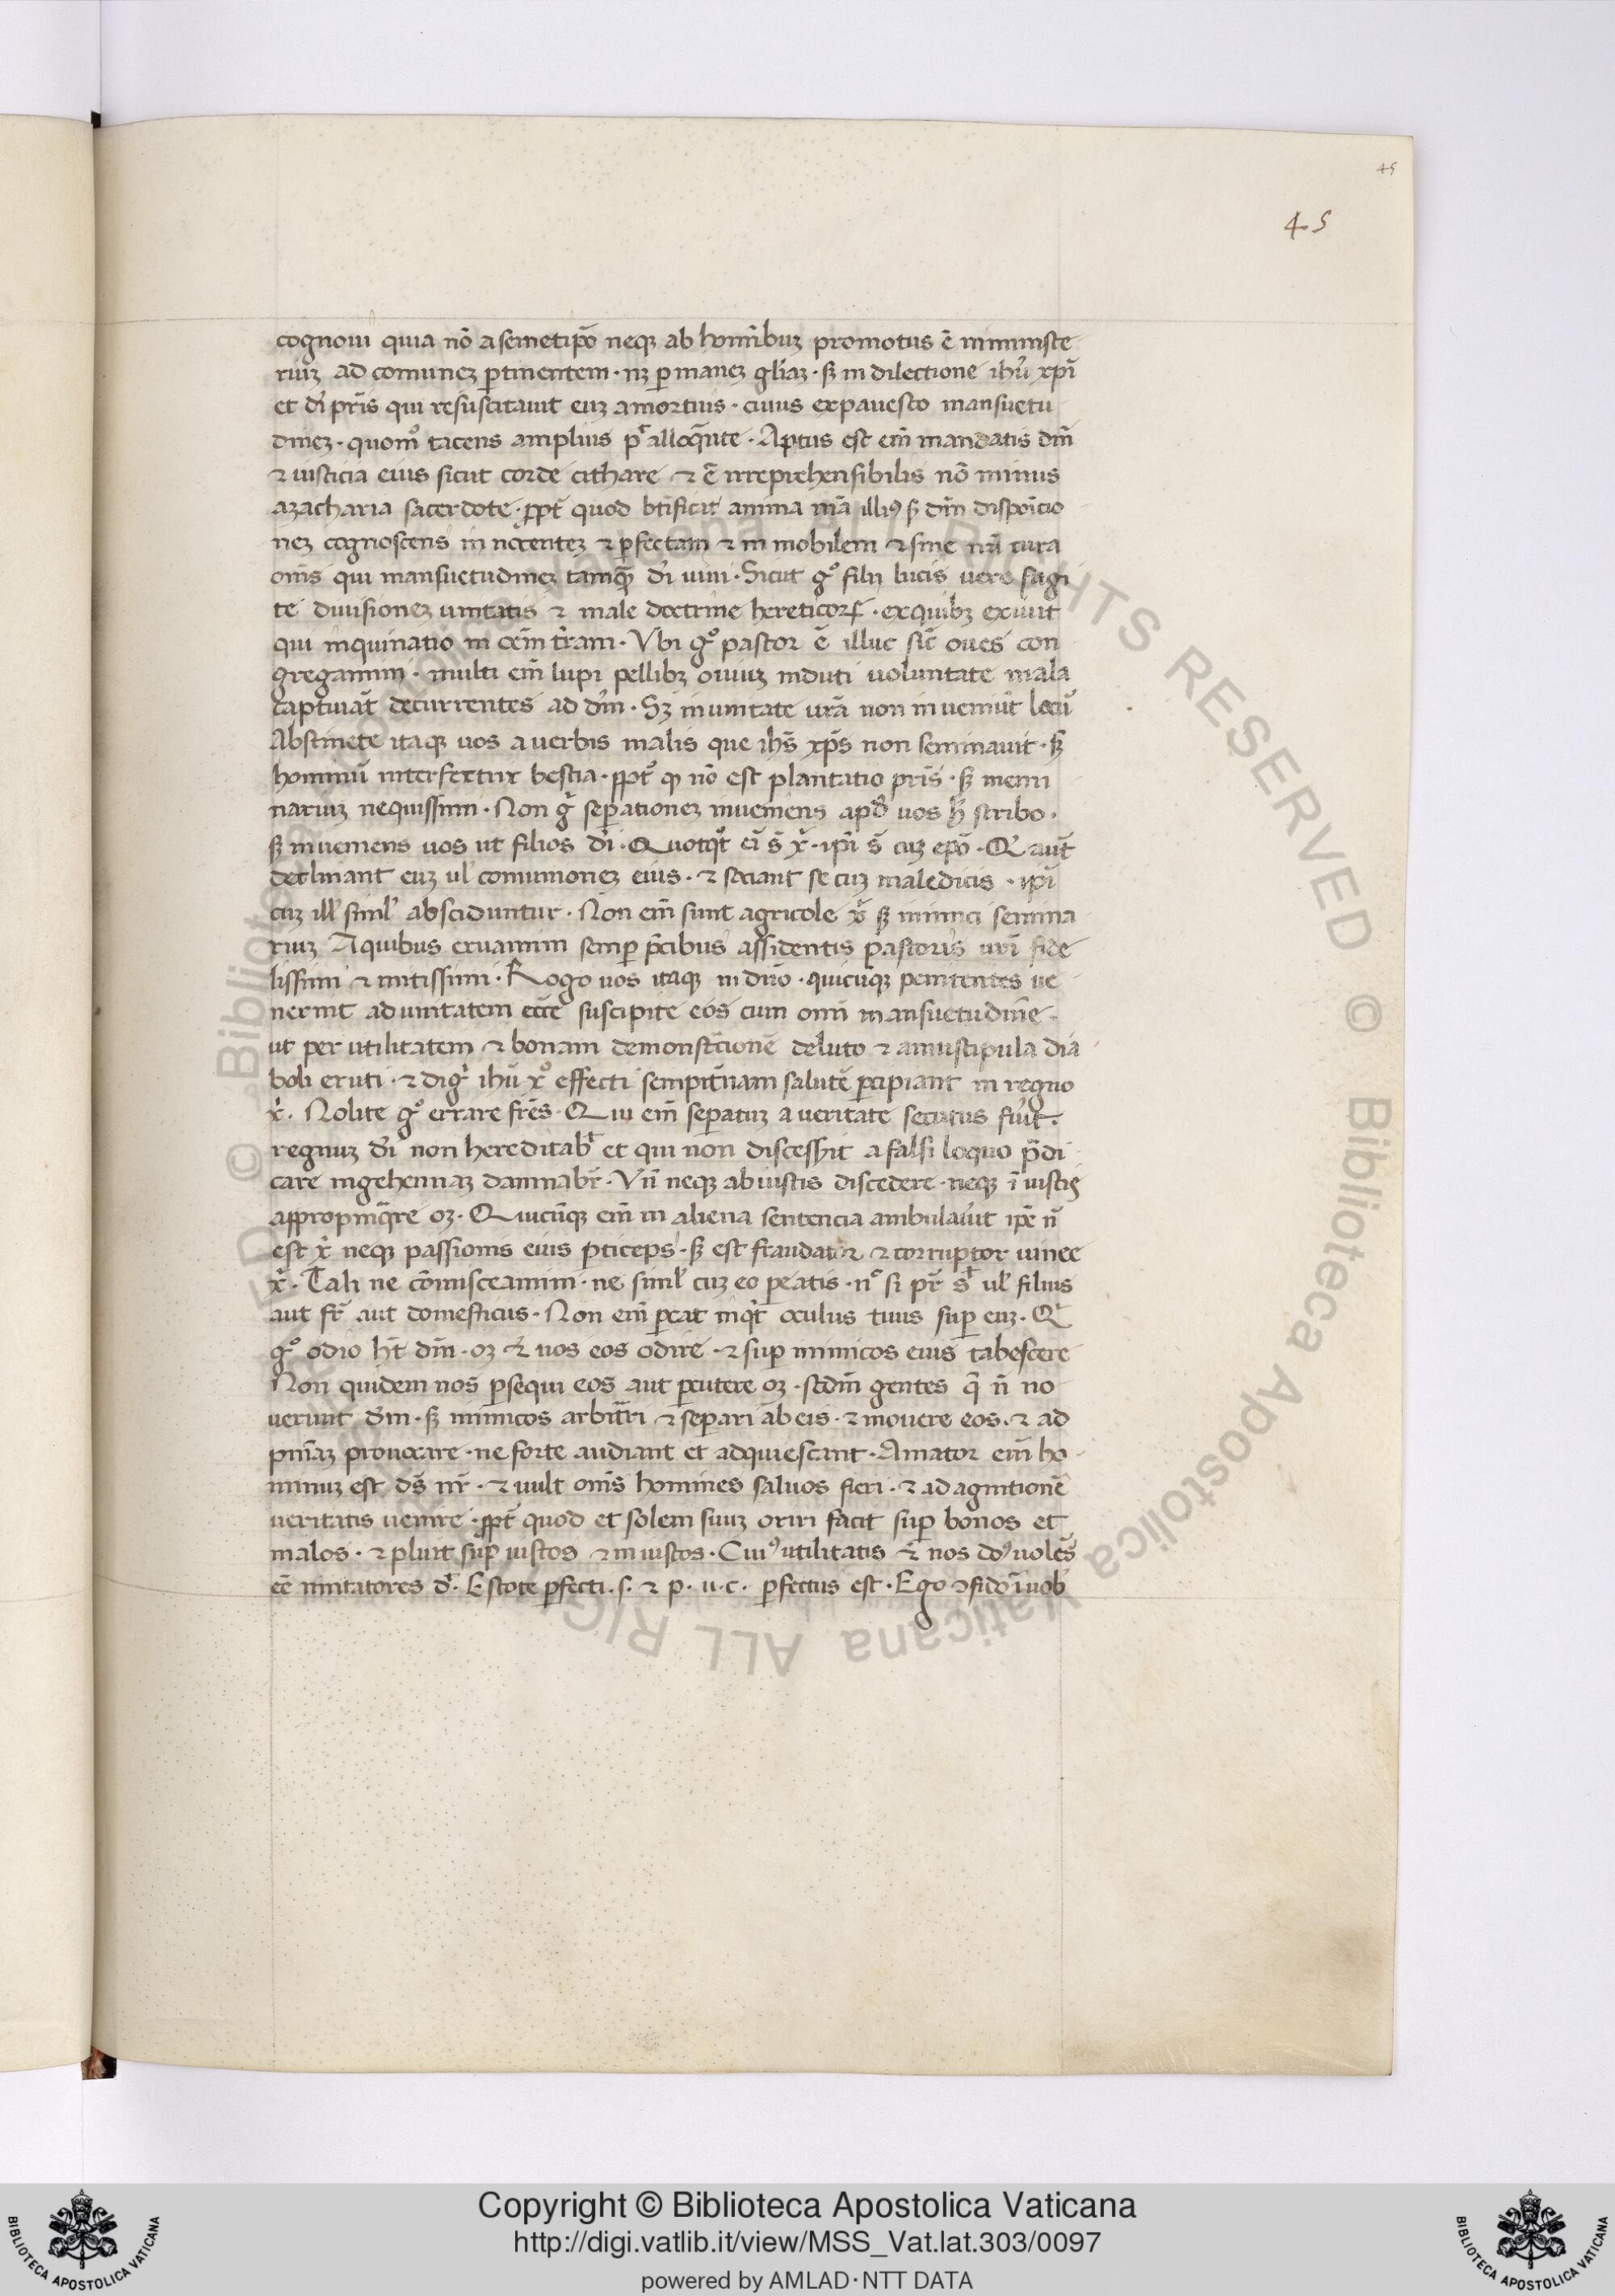 45
45
cognoui quia nō a semetip̄o neqȝ ab hom̄ibuȝ promotus ē in ministe
riuȝ ad comuneȝ ꝑtinentem · nȝ ꝑ maneȝ gl̄iaȝ · sꝫ in dilectione ihū xp̄i
et dī pr̄is qui resuscitauit euȝ a mortuis · cuius expauesco mansuetu
dineȝ · quom̊ tacens amplius
Aptus est em̄ mandatis dn̄i
⁊ iusticia eius sicut corde cithare ⁊ ē irreprehensibilis nō minus
azacharia sacerdote · ꝓpt̄ quod btīficat anima mā illiꝰ sꝫ dm̄ disp̄oicio
neȝ cognoscens in nocenteȝ ⁊ ꝑfectam ⁊ in mobilem ⁊ sine mā cura
om̄s qui mansuetudineȝ tamqȝ dī uiui · Sicut gͦ filij lucis uere fugi
te diuisioneȝ unitatis ⁊ male doctrine hereticoꝝ · ex quibȝ exiuit
qui inquinatio in oēm t̄ram · Vbi gͦ pastor ē illuc sic̄ oues con
gregamini · multi em̄ lupi pellibȝ ouiuȝ induti uoluntate mala
captiuāt decurrentes ad dm̄ · Sȝ in unitate ur̄a non inueniūt locū
Abstinete itaqȝ uos a uerbis malis que ihs̄ xp̄s non seminauit · sꝫ
hominū interfector bestia · ꝓpt̄ qꝫ nō est plantatio pr̄is · sꝫ memi
nariuȝ nequissimi · Non gͥ seꝑationeȝ inueniens apd̄ uos h̄ scribo ·
sꝫ inueniens uos ut filios dī · Quotqͦt ei s̄ xͥ · ipī s̄ cuȝ epō · Qͥ aut̄
declinant euȝ ul̄ comunioneȝ eius · ⁊ sociant se cuȝ maledicis · ipī
cuȝ ill̄ simil̄ absciduntur · Non em̄ sunt agricole xͥ sꝫ inimici semina
riuȝ A quibus eruamini semꝑ p̄cibus assidentis pastoris ur̄i fide
lissimi ⁊ mitissimi · Rogo uos itaqȝ in dn̄o · quicūqȝ penitentes ue
nerint ad unitatem ecc̄e suscipite eos cum om̄i mansuetudine ·
ut per utilitatem ⁊ bonam demonstr̄cionē de luto ⁊ a muscipula dia
boli eruti · ⁊ digͥ ihū xͦ effecti sempit̄nam salutē ꝑcipiant in regno
xͥ · Nolite gͦ errare fr̄es · Qui em̄ seꝑatuȝ a ueritate secutus fūit ·
regnuȝ dī non hereditabͥ et qui non discesserit a falsi loquo p̄di
care in gehennaȝ damnabr̄ · Vn̄ neqȝ ab iustis discedere · neqȝ ī iustis
appropinqͣre oȝ · Quicūqȝ em̄ in aliena sentencia ambulauīt ip̄e n̄
est xͥ neqȝ passionis eius ꝑticeps · sꝫ est fraudator ⁊ corruptor uinee
xͥ · Tali ne cōmisceamini · ne simil̄ cuȝ eo ꝑeatis · nͦ si pr̄ sͥ ul̄ filius
aut fr̄ aut domesticus · Non em̄ ꝑcat inqͥt oculus tuus suꝑ euȝ · Qͥ
gͦ odio h̄t dm̄ · oȝ ⁊ uos eos odire · ⁊ suꝑ inimicos eius tabescere
Non quidem nos ꝑsequi eos aut ꝑcutere oȝ · scd̄m gentes q̄ n̄ no
uerunt dm̄ · sꝫ inimicos arbitr̄i ⁊ seꝑari ab eis · ⁊ mouere eos · ⁊ ad
pn̄iaȝ prouocare · ne forte audiant et adquiescant · Amator em̄ ho
minuȝ est ds̄ nr̄ · ⁊ uult om̄s homines saluos fieri · ⁊ ad agnitionē
ueritatis uenire · ꝓpt̄ quod et solem suuȝ oriri facit suꝑ bonos et
malos · ⁊ pluit suꝑ iustos ⁊ in iustos · Cuiꝰ utilitatis ⁊ nos uolēs
eē imitatores dͥ · Estote ꝑfecti · s · ⁊ p · u · c · ꝑfectus est · Ego ꝯfido ī uob̄
Copyright © Biblioteca Apostolica Vaticana
http://digi.vatlib.it/view/MSS_Vat.lat.303/0097
powered by AMLAD · NTT DATA
BIBLIOTECA APOSTOLICA VATICANA
BIBLIOTECA APOSTOLICA VATICANA
© Biblioteca Apostolica Vaticana ALL RIGHTS RESERVED © Biblioteca Apostolica Vaticana ALL RIGHTS RESERVED